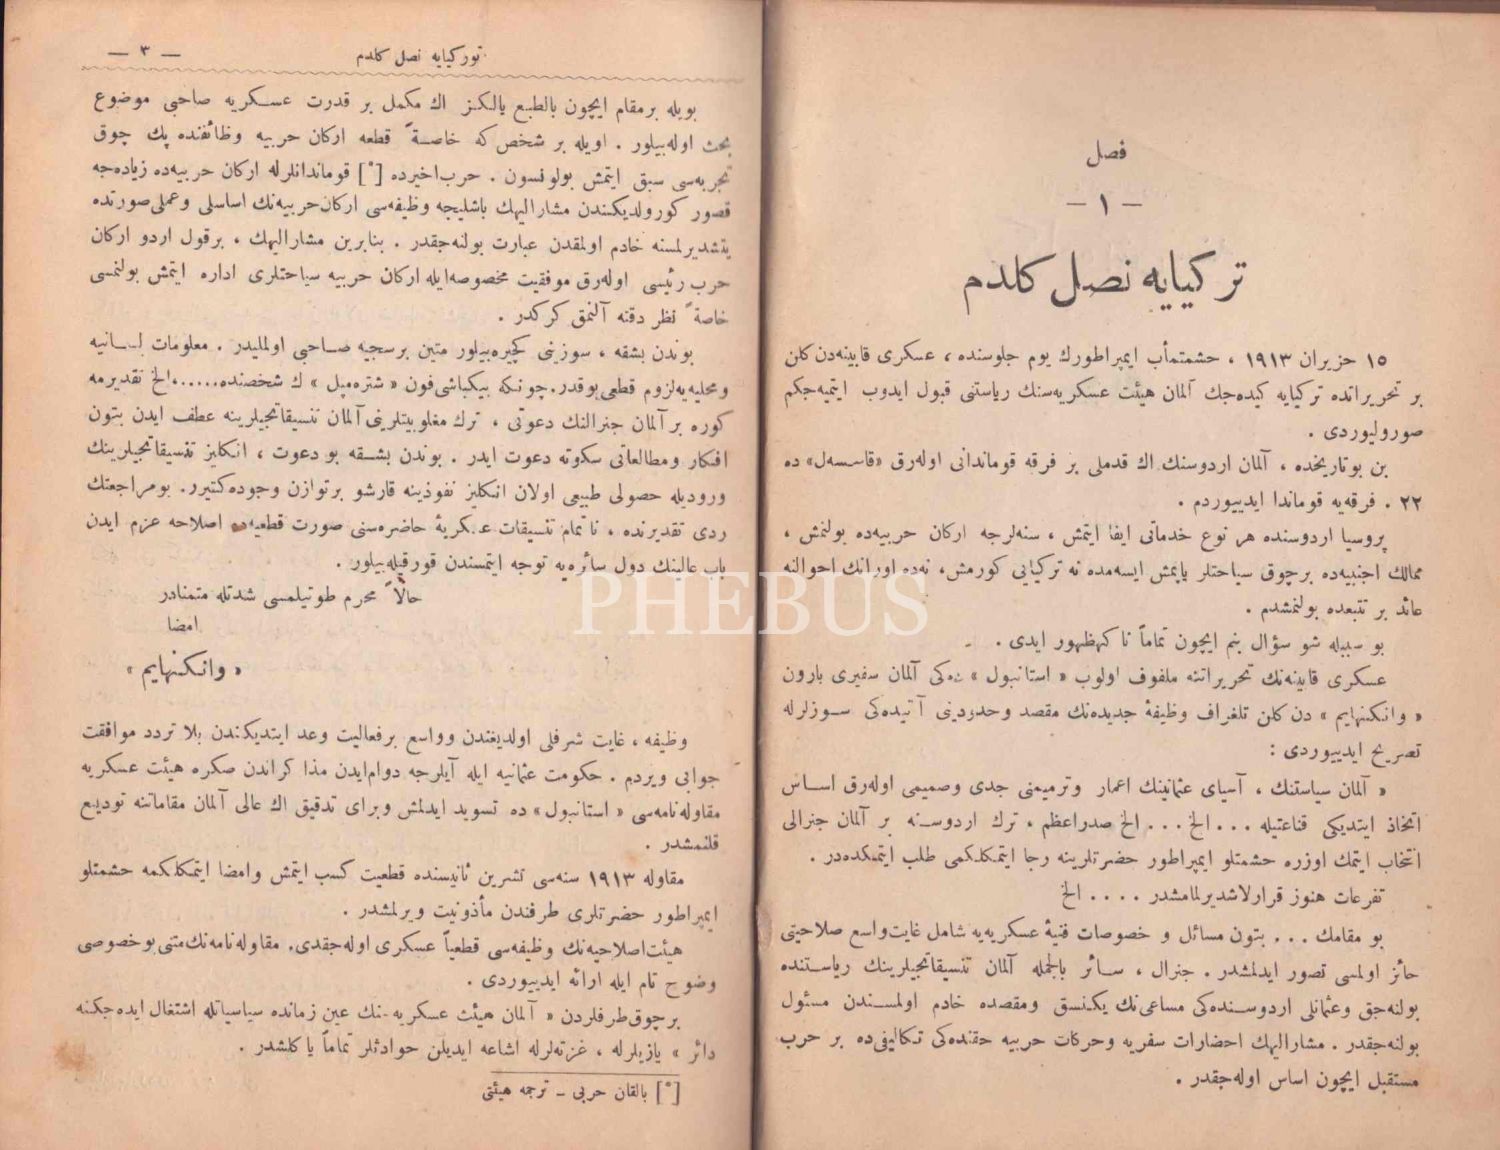 فصل
— ١ —
تركيايه نصل كلدم
١٥ حزيران ١٩١٣ ، حشمتمأب ايمپراطورك يوم جلوسنده ، عسكرى قابينه‌دن كلن
بر تحريراتده تركيايه كيده‌جك آلمان هيئت عسكريه‌سنك رياستنى قبول ايدوب ايتميه‌جكم
صوروليوردى .
بن بوتاريخده ، آلمان اردوسنك اك قدملى بر فرقه قوماندانى اوله‌رق «قاسسه‌ل» ده
٢٢ . فرقه‌يه قوماندا ايدييوردم .
پروسيا اردوسنده هر نوع خدماتى ايفا ايتمش ، سنه‌لرجه اركان حربيه‌ده بولنمش ،
ممالك اجنبيه‌ده برچوق سياحتلر ياپمش ايسه‌مده نه تركيايى كورمش، نه‌ده اورانك احوالنه
عائد بر تتبعده بولنمشدم .
بو سببله شو سؤال بنم ايچون تماماً ناكهظهور ايدى .
عسكرى قابينه‌نك تحريراتنه ملفوف اولوب « استانبول » ده‌كى آلمان سفيرى بارون
« وانكنهايم » دن كلن تلغراف وظيفهٔ جديده‌نك مقصد وحدودينى آتيده‌كى سوزلرله
تصريح ايدييوردى :
« آلمان سياستنك ، آسياى عثمانينك اعمار وترميمنى جدى وصميمى اوله‌رق اساس
اتخاذ ايتديكى قناعتيله ... الخ ... الخ صدراعظم ، ترك اردوسنه بر آلمان جنرالى
انتخاب ايتمك اوزره حشمتلو ايمپراطور حضرتلرينه رجا ايتمكلكمى طلب ايتمكده‌در .
تفرعات هنوز قرارلاشديرلمامشدر .... الخ
بو مقامك ... بتون مسائل و خصوصات فنيهٔ عسكريه‌يه شامل غايت‌واسع صلاحيتى
حائز اولمسى تصور ايدلمشدر . جنرال ، سائر بالجمله آلمان تنسيقاتجيلرينك رياستنده
بولنه‌جق وعثمانلى اردوسنده‌كى مساعى‌نك يكنسق ومقصده خادم اولمسندن مسئول
بولنه‌جقدر . مشاراليهك احضارات سفريه وحركات حربيه حقنده‌كى تكاليفى‌ده بر حرب
مستقبل ايچون اساس اوله‌جقدر .
توركيايه نصل كلدم
— ٣ —
بويله برمقام ايچون بالطبع يالكز اك مكمل بر قدرت عسكريه صاحبى موضوع
بحث اوله‌بيلور . اويله بر شخص‌كه خاصةً قطعه اركان حربيه وظائفنده پك چوق
تجربه‌سى سبق ايتمش بولونسون . حرب‌اخيرده [*] قوماندانلرله اركان حربيه‌ده زياده‌جه
قصور كورولديكندن مشاراليهك باشليجه وظيفه‌سى اركان‌حربيه‌نك اساسلى وعملى‌صورتده
يتشديرلمسنه خادم اولمقدن عبارت بولنه‌جقدر . بنابرين مشاراليهك ، برقول اردو اركان
حرب رئيسى اوله‌رق موفقيت مخصوصه‌ايله اركان حربيه سياحتلرى اداره ايتمش بولنمسى
خاصةً نظر دقته آلنمق كركدر .
بوندن بشقه ، سوزينى كچيره‌بيلور متين برسجيه صاحبى اولمليدر . معلومات لسانيه
ومحليه‌يه‌لزوم قطعى‌يوقدر. چونكه بيكباشى‌فون « شتره‌مپل » ك شخصنده.......الخ تقديرمه
كوره بر آلمان جنرالنك دعوتى ، ترك مغلوبيتلرينى آلمان تنسيقاتجيلرينه عطف ايدن بتون
افكار ومطالعاتى سكوته دعوت ايدر . بوندن بشقه بو دعوت ، انكليز تنسيقاتجيلرينك
وروديله حصولى طبيعى اولان انكليز نفوذينه قارشو برتوازن وجوده‌كتيرر. بومراجعتك
ردى تقديرنده ، ناتمام تنسيقات عسكريهٔ حاضره‌سنى صورت قطعيه‌ده اصلاحه عزم ايدن
باب عالينك دول سائره‌يه توجه ايتمسندن قورقيله‌بيلور .
حالاً محرم طوتيلمسى شدتله متمنادر
امضا
« وانكنهايم »
وظيفه ، غايت شرفلى اولديغندن وواسع برفعاليت وعد ايتديكندن بلا تردد موافقت
جوابى ويردم . حكومت عثمانيه ايله آيلرجه دوام‌ايدن مذاكراندن صكره هيئت عسكريه
مقاوله‌نامه‌سى « استانبول» ده تسويد ايدلمش وبراى تدقيق اك عالى آلمان مقاماتنه توديع
قلنمشدر .
مقاوله ١٩١٣ سنه‌سى تشرين ثانيسنده قطعيت كسب ايتمش وامضا ايتمكلكمه حشمتلو
ايمپراطور حضرتلرى طرفندن مأذونيت ويرلمشدر .
هيئت‌اصلاحيه‌نك وظيفه‌سى قطعياً عسكرى اوله‌جقدى. مقاوله‌نامه‌نك‌متنى‌بوخصوصى
وضوح تام ايله ارائه ايدييوردى .
برچوق‌طرفلردن « آلمان هيئت عسكريه‌نك عين زمانده سياسياتله اشتغال ايده‌جكنه
دائر » يازيلرله ، غزته‌لرله اشاعه ايديلن حوادثلر تماماً ياكلشدر .
[*] بالقان حربى ـ ترجمه هيئتى
PHEBUS